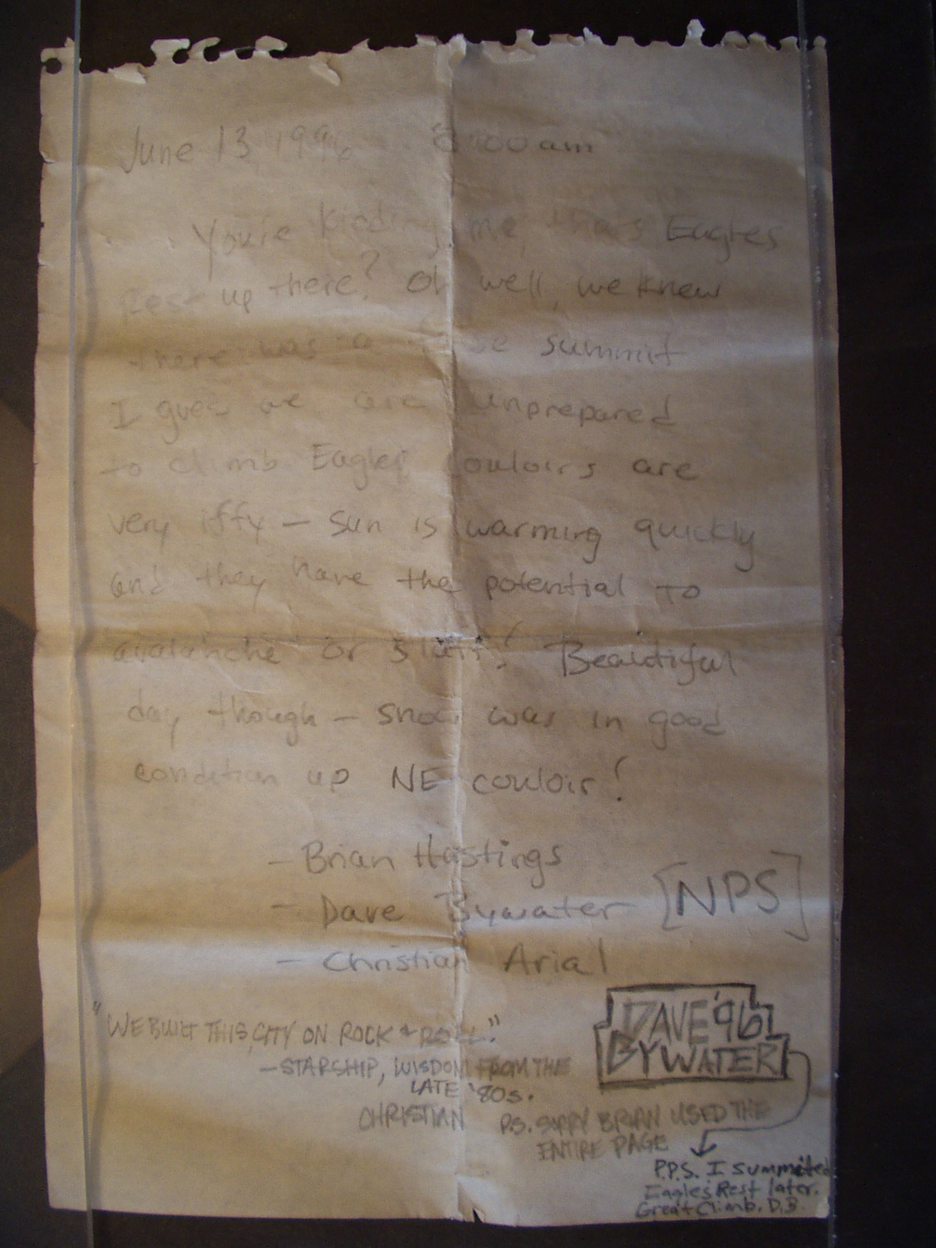 June 13, 1996 8:00 am
You're kidding me, that's Eagles
Rest up there? Oh well, we knew
there was a false summit
I guess we are unprepared
to climb Eagles. Couloirs are
very iffy – sun is warming quickly
and they have the potential to
avalanche or sluff! Beautiful
day though – snow was in good
condition up NE couloir!
– Brian Hastings
– Dave Bywater [NPS]
– Christian Arial
"WE BUILT THIS CITY ON ROCK & ROLL."
– STARSHIP, WISDOM FROM THE
LATE '80s.
CHRISTIAN
DAVE '96
BYWATER
P.S. SORRY BRIAN USED THE
ENTIRE PAGE
P.P.S. I summited
Eagles Rest later.
Great Climb. D.B.